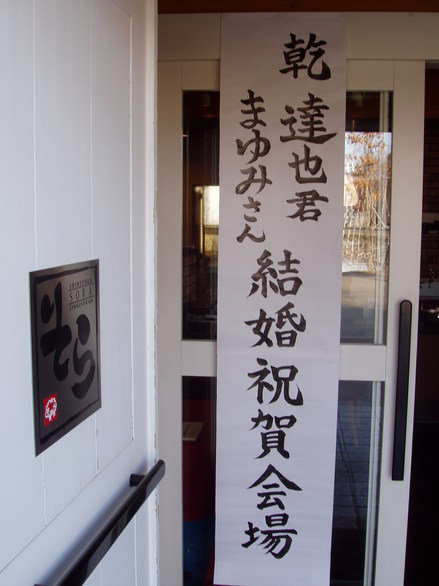 乾 達也君
まゆみさん
結婚祝賀会場
SORA
そら